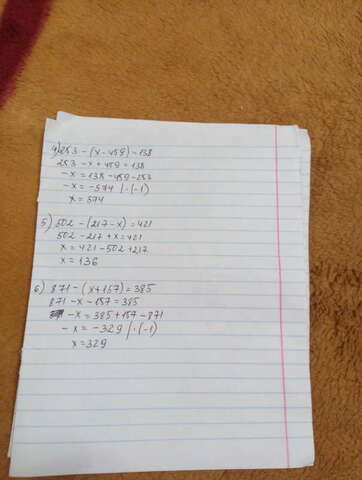 4) 253 - (x - 459) - 138
253 - x + 459 = 138
- x = 138 - 459 - 253
- x = -574 | · (-1)
x = 574
5) 502 - (217 - x) = 421
502 - 217 + x = 421
x = 421 - 502 + 217
x = 136
6) 871 - (x + 157) = 385
871 - x - 157 = 385
- x = 385 + 157 - 871
- x = -329 | · (-1)
x = 329